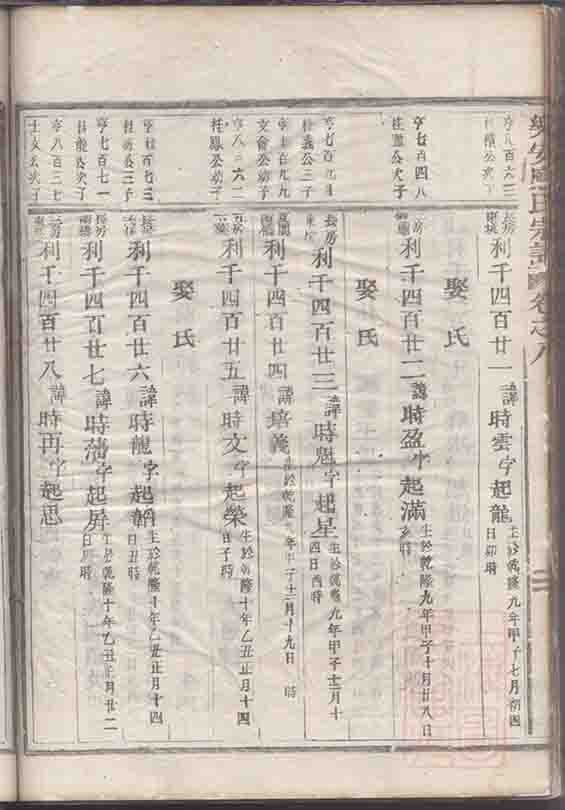 氏宗譜
卷之八
亨八百六三
公次子
長房
利千四百廿一
諱時雲字起龍
生於乾隆九年甲子七月初四
日卯時
娶氏
亨七百四八
公次子
利千四百廿二
諱時盈字起滿
生於乾隆九年甲子十月廿八日
時
娶氏
亨七百九
桂義公三子
長房
利千四百廿三
諱時魁字起星
生於乾隆九年甲子十二月十
四日酉時
亨七百九九
文會公幼子
利千四百廿四
諱培義
生於乾隆九年甲子十二月十九日 時
亨八百六二
桂鳳公幼子
利千四百廿五
諱時文字起榮
生於乾隆十年乙丑正月十四
日子時
娶氏
亨七百七三
公三子
長房
利千四百廿六
諱時龍字起韜
生於乾隆十年乙丑正月十四
日丑時
亨七百七一
桂龍公次子
長房
利千四百廿七
諱時藩字起屏
生於乾隆十年乙丑年月廿二
日卯時
亨八百三七
公次子
利千四百廿八
諱時再字起思